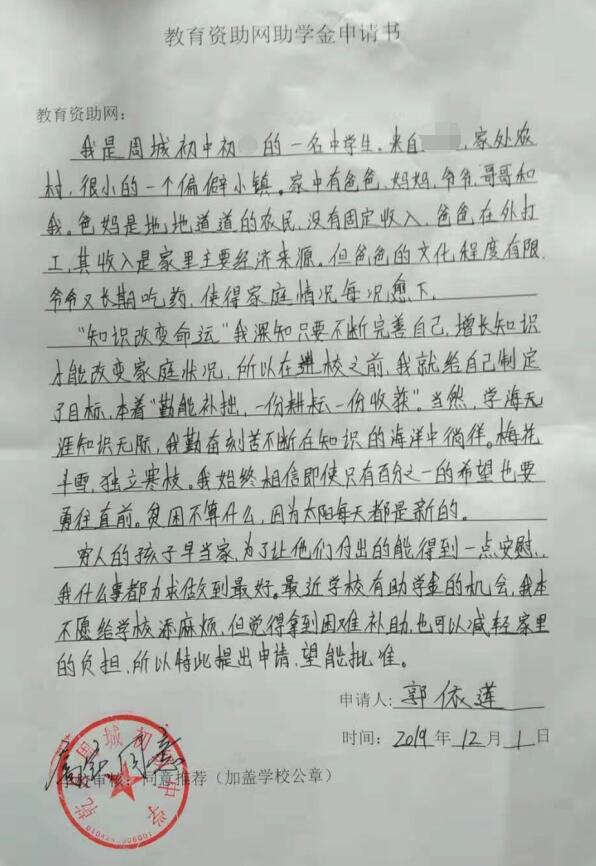 教育资助网助学金申请书
教育资助网：
我是周城初中初 的一名中学生。来自 ，家处农
村，很小的一个偏僻小镇。家中有爸爸，妈妈，爷爷，哥哥和
我。爸妈是地地道道的农民，没有固定收入，爸爸在外打
工，其收入是家里主要经济来源。但爸爸的文化程度有限，
爷爷又长期吃药，使得家庭情况每况愈下。
“知识改变命运”我深知只要不断完善自己，增长知识
才能改变家庭状况，所以在进校之前，我就给自己制定
了目标，本着“勤能补拙，一份耕耘一份收获”。当然，学海天
涯知识无际，我勤奋刻苦不断在知识的海洋中徜徉。梅花
斗雪，独立寒枝。我始终相信即使只有百分之一的希望也要
勇往直前。贫困不算什么，因为太阳每天都是新的。
穷人的孩子早当家，为了让他们付出的能得到一点安慰，
我什么事都力求做到最好。最近学校有助学金的机会，我本
不愿给学校添麻烦，但觉得拿到困难补助，也可以减轻家里
的负担，所以特此提出申请，望能批准。
申请人：郭依莲
时间：2019年12月1日
同意
学校审核：同意推荐（加盖学校公章）
周城初级中学